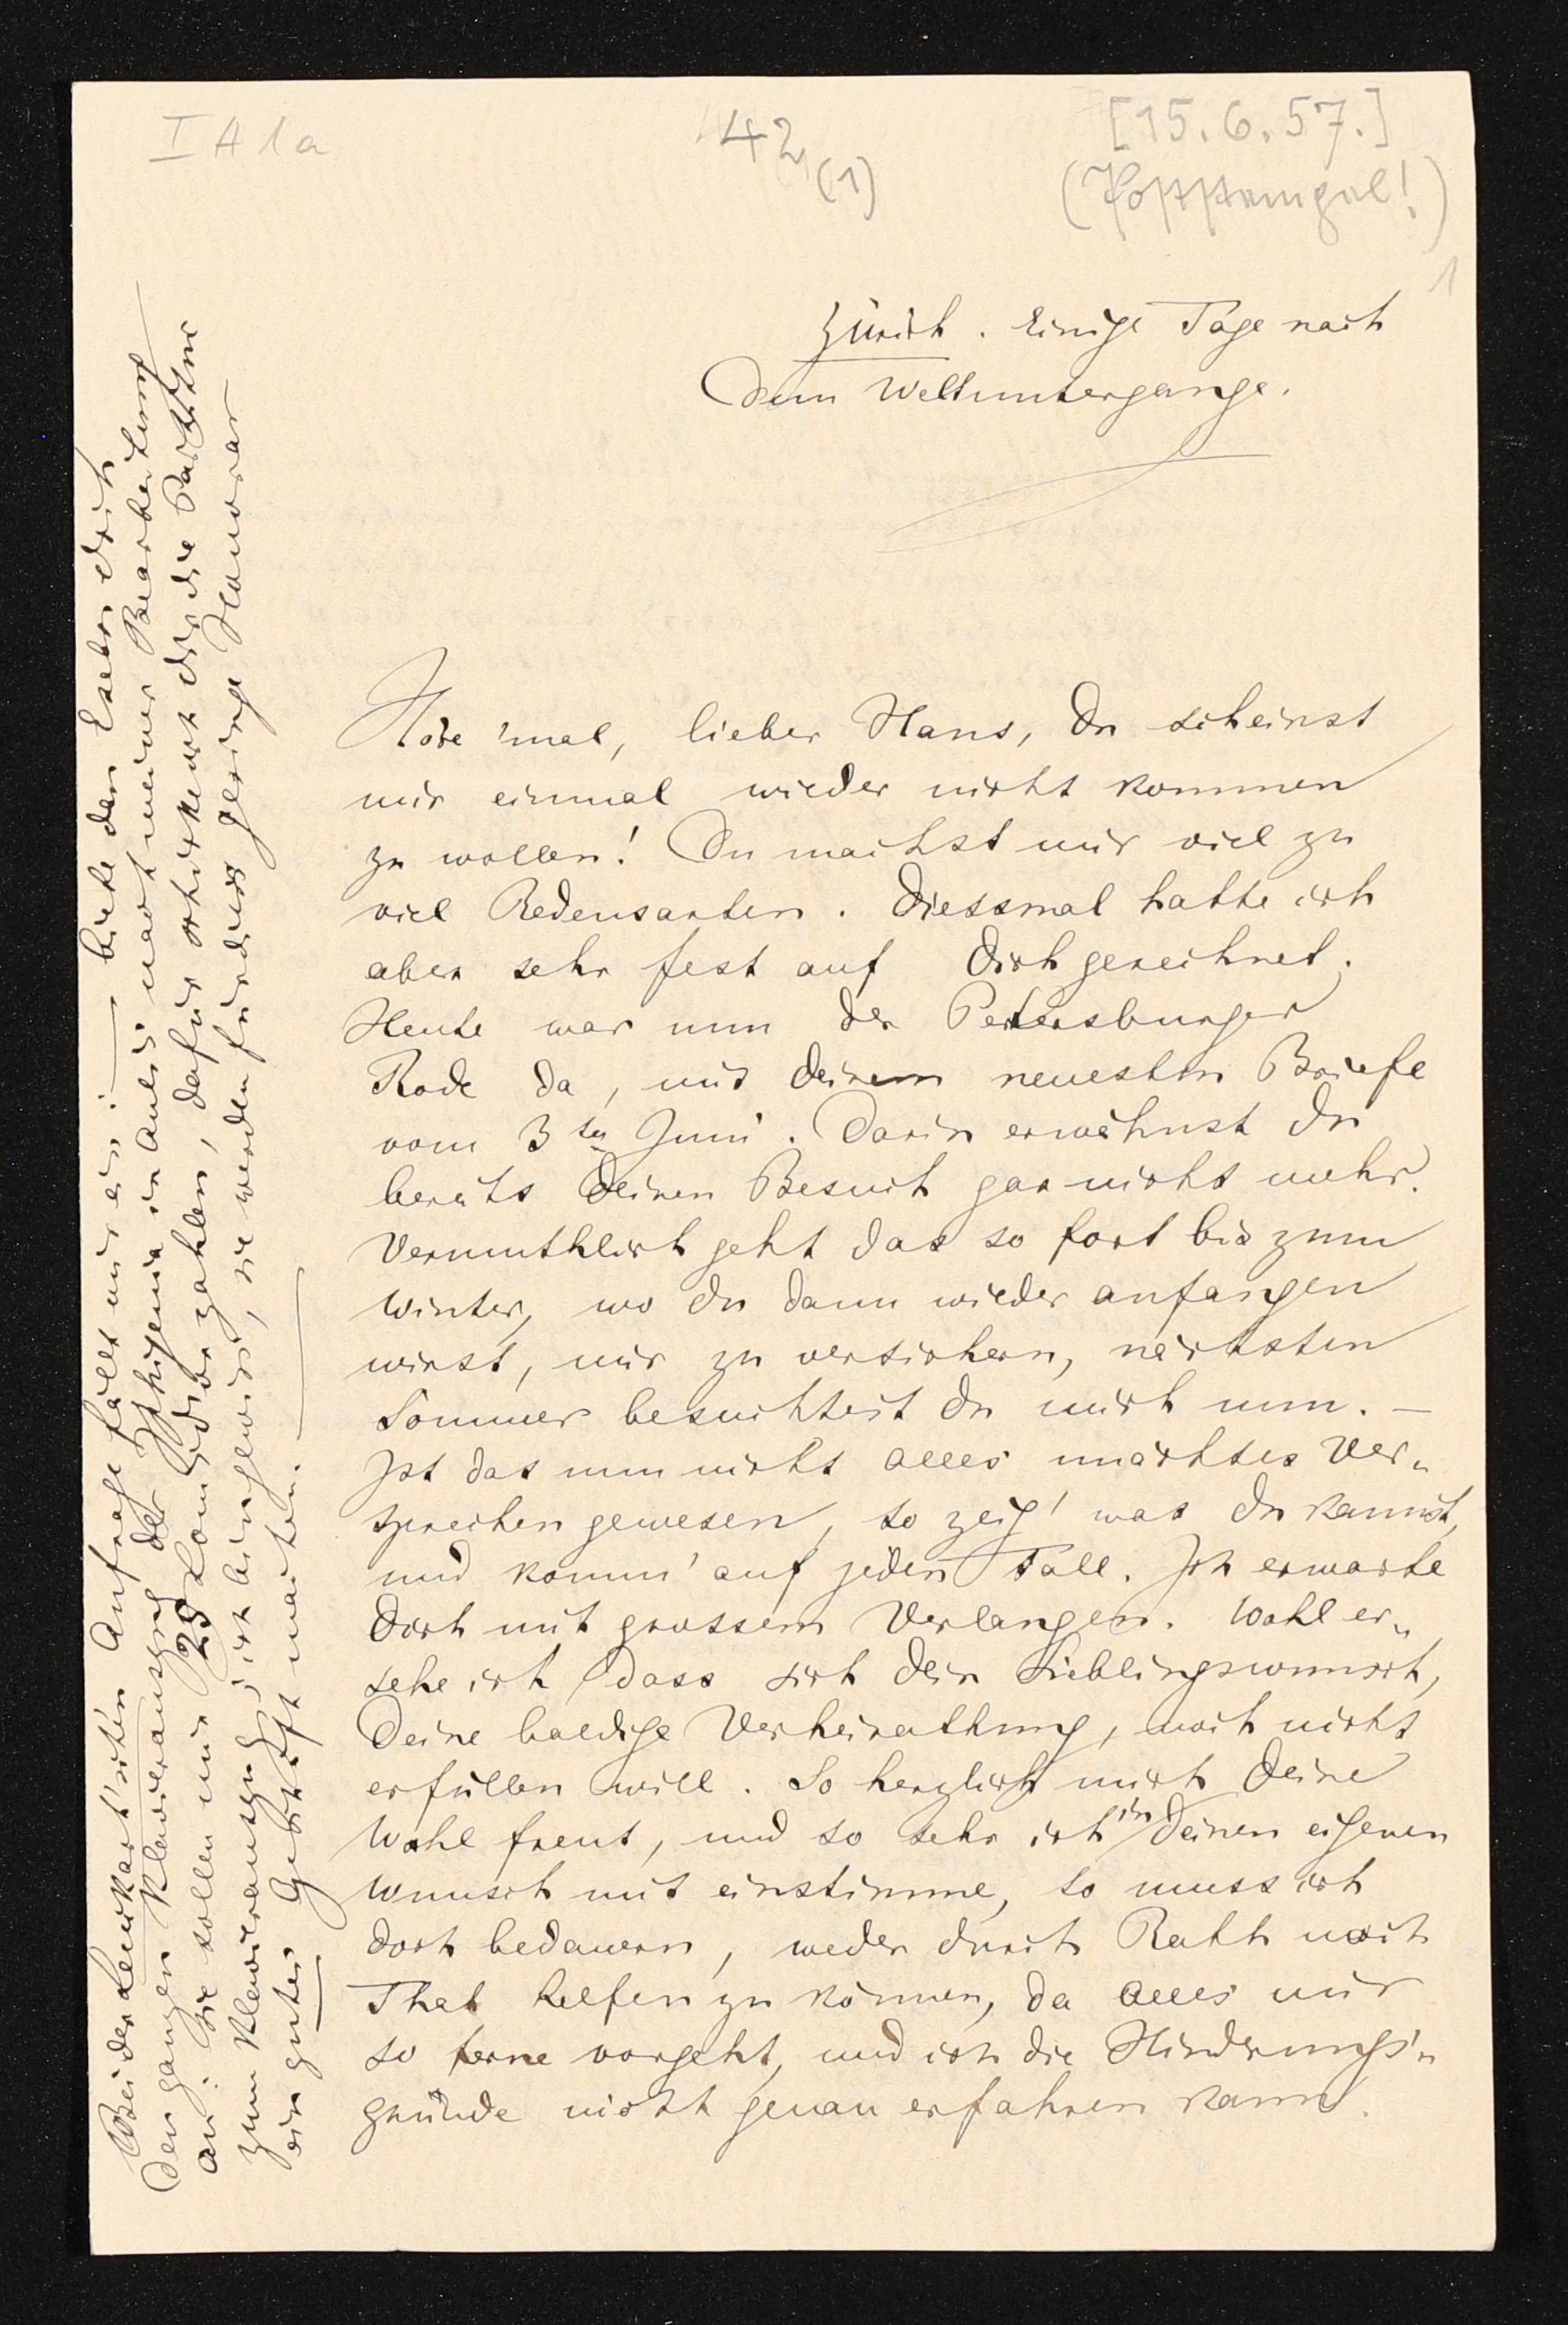 I A 1a
42
(1)
[15. 6. 57.]
(Poststempel!)
1
Zürich. Einige Tage nach
dem Weltuntergange.
Höre 'mal, lieber Hans, Du scheinst
mir einmal wieder nicht kommen
zu wollen! Du machst mir viel zu
viel Redensarten. Diessmal hatte ich
aber sehr fest auf Dich gerechnet.
Heute war nun der Petersburger
Rode da, mit deinem neuesten Briefe
vom 3ten Juni. Darin erwähnst Du
bereits Deinen Besuch gar nicht mehr.
Vermuthlich geht das so fort bis zum
Winter, wo Du dann wieder anfangen
wirst, mir zu versichern, nächsten
Sommer besuchtest Du mich nun. –
Ist das nun nicht alles unächtes Ver„
sprechen gewesen, so zeig' was Du kannst,
und komm' auf jeden Fall. Ich erwarte
Dich mit grossem Verlangen. Wohl er„
sehe ich dass sich dein Lieblingswunsch,
Deine baldige Verheirathung, noch nicht
erfüllen will. So herzlich mich Deine
Wahl freut, und so sehr ich in Deinen eigenen
Wunsch mit einstimme, so muss ich
doch bedauern, weder durch Rath noch
That helfen zu können, da Alles mir
so ferne vorgeht, und ich die Hinderungs„
gründe nicht genau erfahren kann.
Bei der Leuckart'schen Anfrage fällt mir ein: — biete den Eseln doch
den ganzen Klavierauszug der Iphigenia in Aulis nach meiner Bearbeitung
an: sie sollen mir 25 Louisd'or zahlen, dafür schicke ich Dir die Partitur
zum Klavierauszug; ich bin gewiss, sie werden für diess geringe Honorar
ein gutes Geschäft machen. —